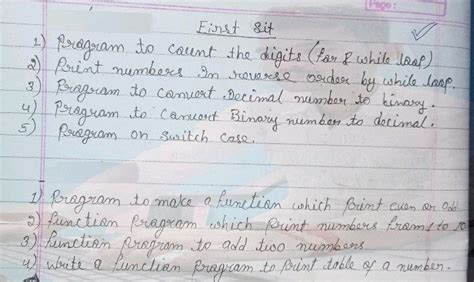 Page:
First Sit
1) Program to count the digits (for & while loop)
2) Print numbers In reverse order by while loop.
3) Program to convert Decimal number to binary.
4) Program to convert Binary number to decimal.
5) Program on switch case.
1) Program to make a function which print even or odd
2) Function Program which print numbers from 1 to 10
3) Function Program to add two numbers
4) Write a function Program to print table of a number.